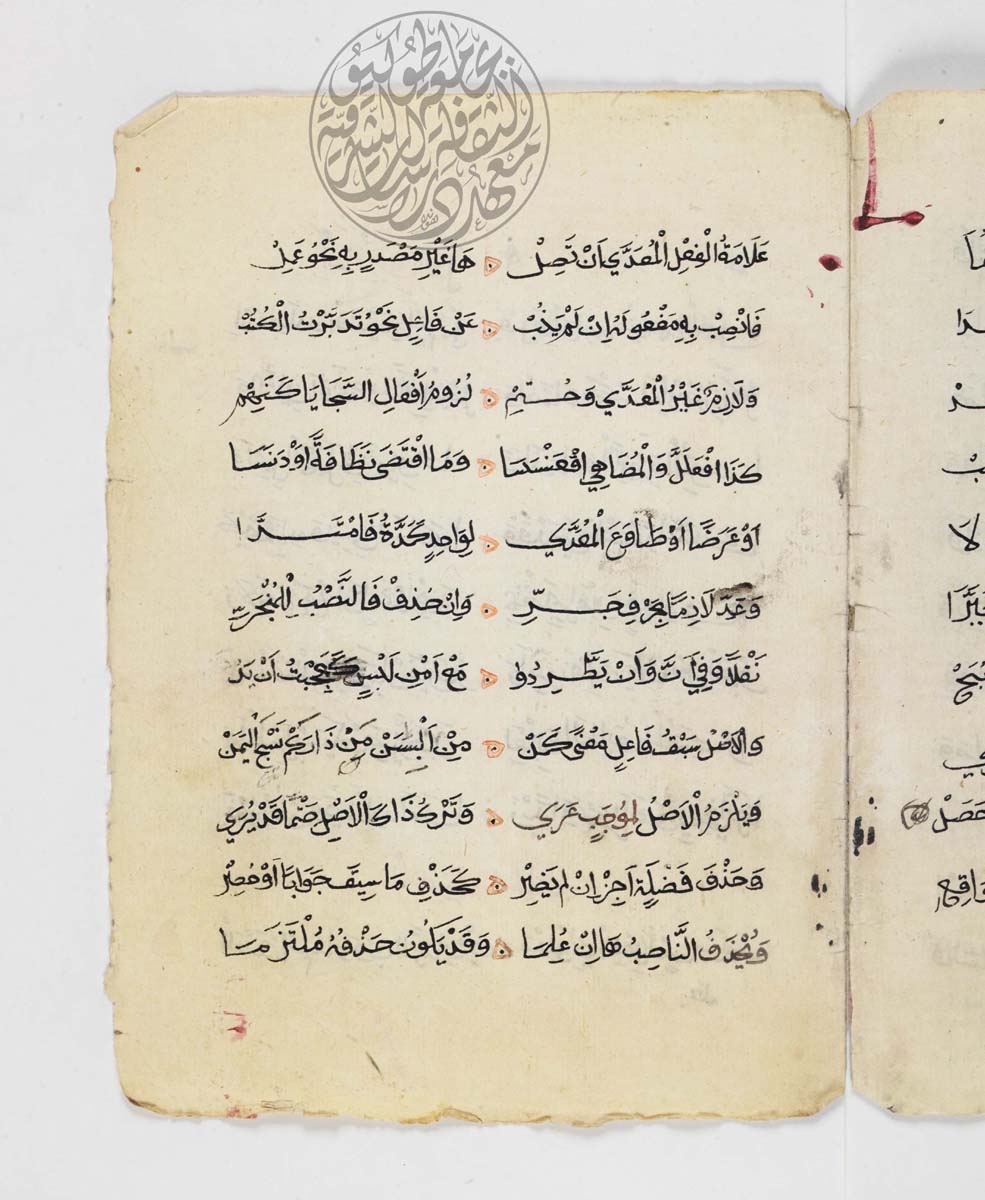 معهد دراسات الثقافة الشرقية بجامعة طوكيو
عَلَامَةُ الْفِعْلِ الْمُعَدَّي اَنْ تَصِلْ هَا غَيْرِ مَصْدَرٍ بِهِ نَحْوُ عَمِلْ
فَانْصِبْ بِهِ مَفْعُولَهُ اِنْ لَمْ يَنُبْ عَنْ فَاعِلٍ نَحْوُ تَدَبَّرْتُ الْكُتُبْ
وَلَازِمٌ غَيْرُ الْمُعَدَّي وَحُتِمْ لُزُومُ اَفْعَالِ السَّجَايَا كَنَهِمْ
كَذَا افْعَلَلَّ وَالْمُضَاهِي اقْعَنْسَسَا وَمَا اقْتَضَى نَظَافَةً اَوْ دَنَسَا
اَوْ عَرَضًا اَوْ طَاوَعَ الْمُعَدَّي لِوَاحِدٍ كَمَدَّهُ فَامْتَدَّا
وَعَدِّ لَازِمًا بِحَرْفِ جَرِّ وَاِنْ حُذِفْ فَالنَّصْبُ لِلْمُنْجَرِّ
نَقْلًا وَفِي اَنَّ وَاَنْ يَطَّرِدُ مَعْ اَمْنِ لَبْسٍ كَعَجِبْتُ اَنْ يَدُ
وَالْاَصْلُ سَبْقُ فَاعِلٍ مَعْنًى كَمَنْ مِنْ اَلْبِسَنْ مَنْ ذَارَكُمْ نَسْجَ الْيَمَنْ
وَيَلْزَمُ الْاَصْلُ لِمُوجِبٍ عَرَي وَتَرْكُ ذَاكَ الْاَصْلِ حَتْمًا قَدْ يُرَي
وَحَذْفَ فَضْلَةٍ اَجِزْ اِنْ لم يَضِرْ كَحَذْفِ مَا سِيقَ جَوَابًا اَوْ حُصِرْ
وَيُحْذَفُ النَّاصِبُهَا اِنْ عُلِمَا وَقَدْ يَكُونُ حَذْفُهُ مُلْتَزَمَا